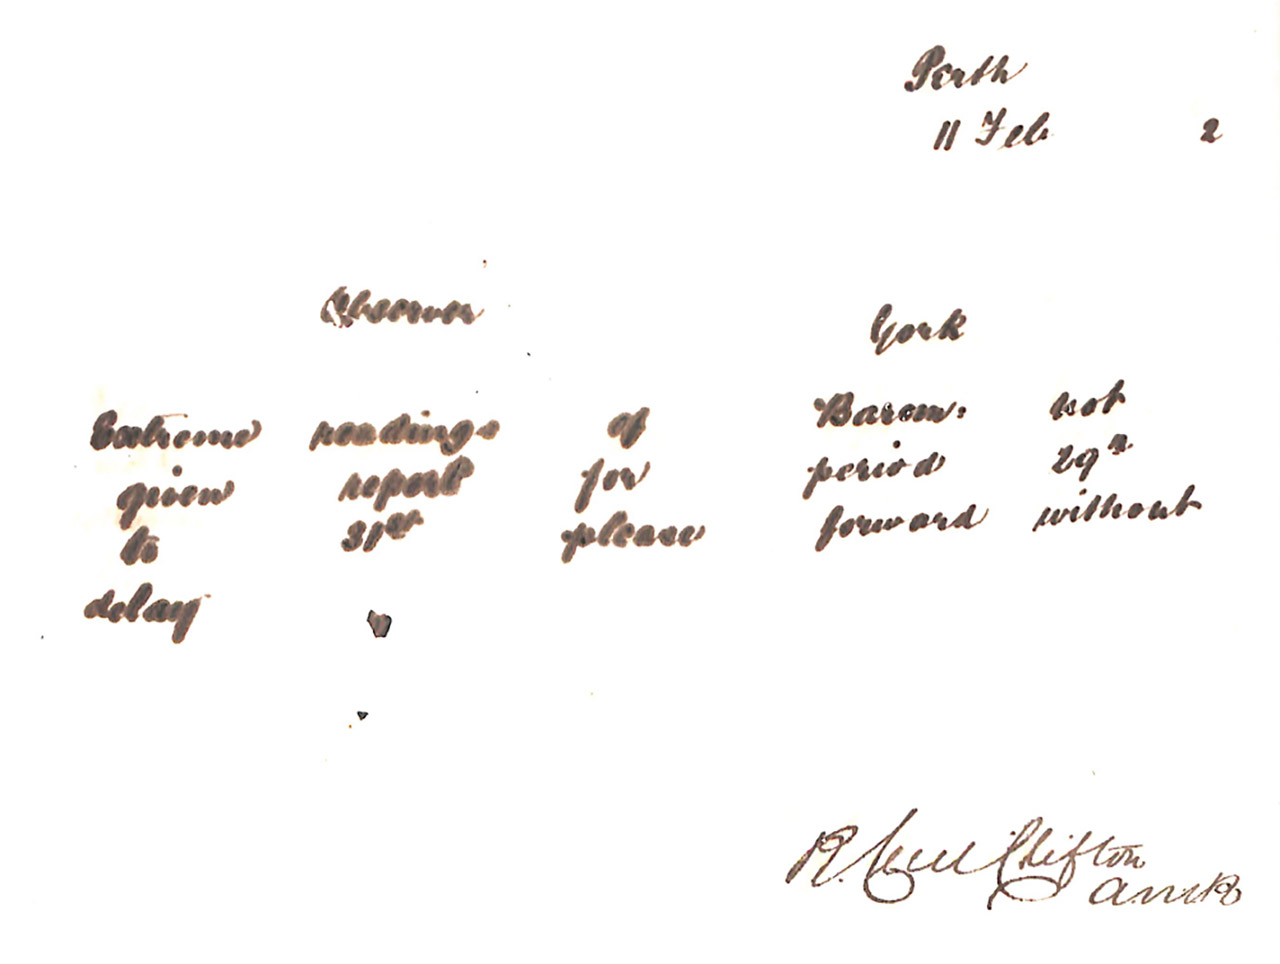 Perth
11 Feb 2
Observer York
Extreme readings of Barom: not
given report for period 29th
to 31st please forward without
delay
R. Cecil Clifton